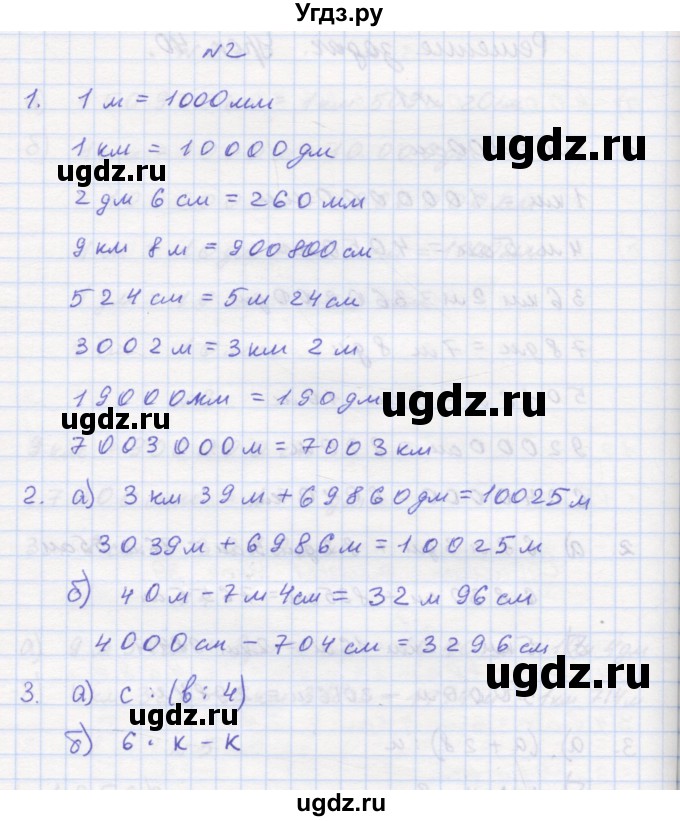 Угдз.ру
№2
1. 1 м = 1000 мм
1 км = 10000 дм
2 дм 6 см = 260 мм
9 км 8 м = 900800 см
524 см = 5 м 24 см
3002 м = 3 км 2 м
19000 мм = 190 дм
7003000 м = 7003 км
2. а) 3 км 39 м + 69860 дм = 10025 м
3039 м + 6986 м = 10025 м
б) 40 м – 7 м 4 см = 32 м 96 см
4000 см – 704 см = 3296 см
3. а) c : (b : 4)
б) 6 · к – к
ugdz.ru
ugdz.ru
ugdz.ru
ugdz.ru
ugdz.ru
ugdz.ru
ugdz.ru
ugdz.ru